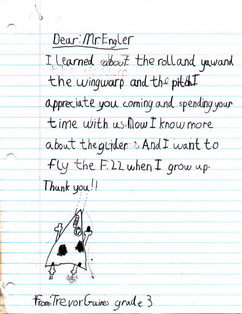 Dear: Mr Engler
I learned about the roll and yaw and
the wingwarp and the pitch I
appreciate you coming and spending your
time with us. Now I know more
about the glider. And I want to
fly the F.22 when I grow up.
Thank you!!
From Trevor Gaines grade 3